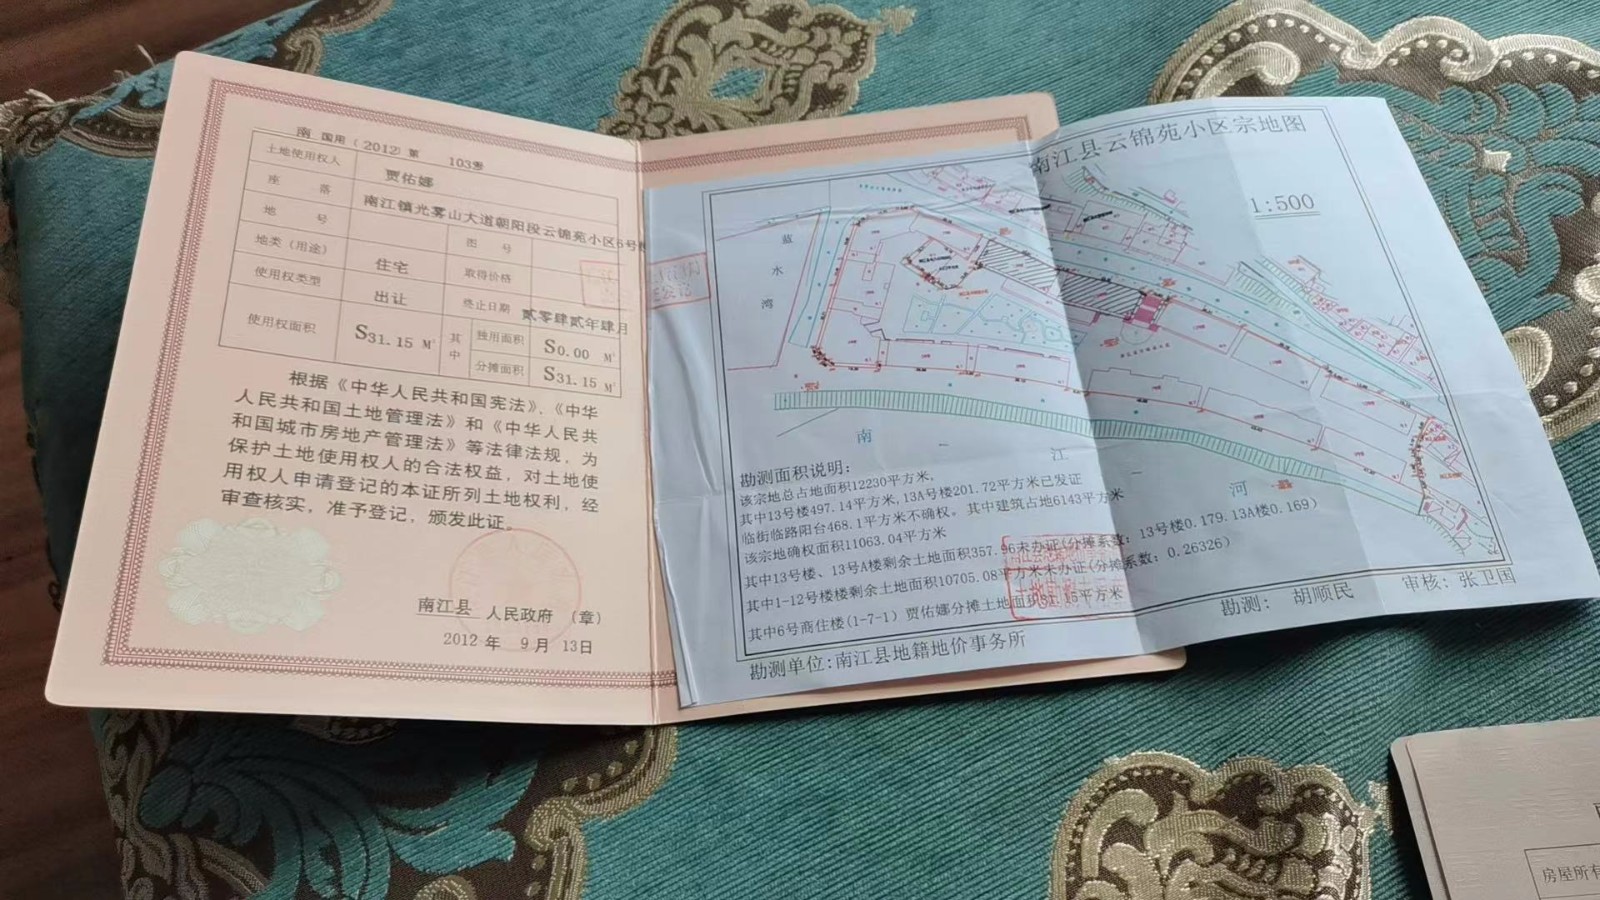 南 国用（2012）第 103号
土地使用权人 贾佑娜
座 落 南江镇光雾山大道朝阳段云锦苑小区6号
地 号 图 号
地类（用途） 住宅 取得价格
使用权类型 出让 终止日期 贰零肆贰年肆月
使用权面积 S31.15 M² 其中 独用面积 S0.00 M²
分摊面积 S31.15 M²
根据《中华人民共和国宪法》、《中华
人民共和国土地管理法》和《中华人民共
和国城市房地产管理法》等法律法规，为
保护土地使用权人的合法权益，对土地使
用权人申请登记的本证所列土地权利，经
审查核实，准予登记，颁发此证。
南江县 人民政府 （章）
2012 年 9 月 13 日
南江县云锦苑小区宗地图
1:500
蓝
水
湾
南
江
河
勘测面积说明：
该宗地总占地面积12230平方米，
其中13号楼497.14平方米，13A号楼201.72平方米已发证
临街临路阳台468.1平方米不确权。其中建筑占地6143平方米
该宗地确权面积11063.04平方米
其中13号楼、13号A楼剩余土地面积357.96未办证(分摊系数：13号楼0.179.13A楼0.169)
其中1-12号楼楼剩余土地面积10705.08平方米未办证(分摊系数：0.26326)
其中6号商住楼(1-7-1) 贾佑娜分摊土地面积31.15平方米
勘测单位:南江县地籍地价事务所
勘测： 胡顺民
审核：张卫国
房屋所有